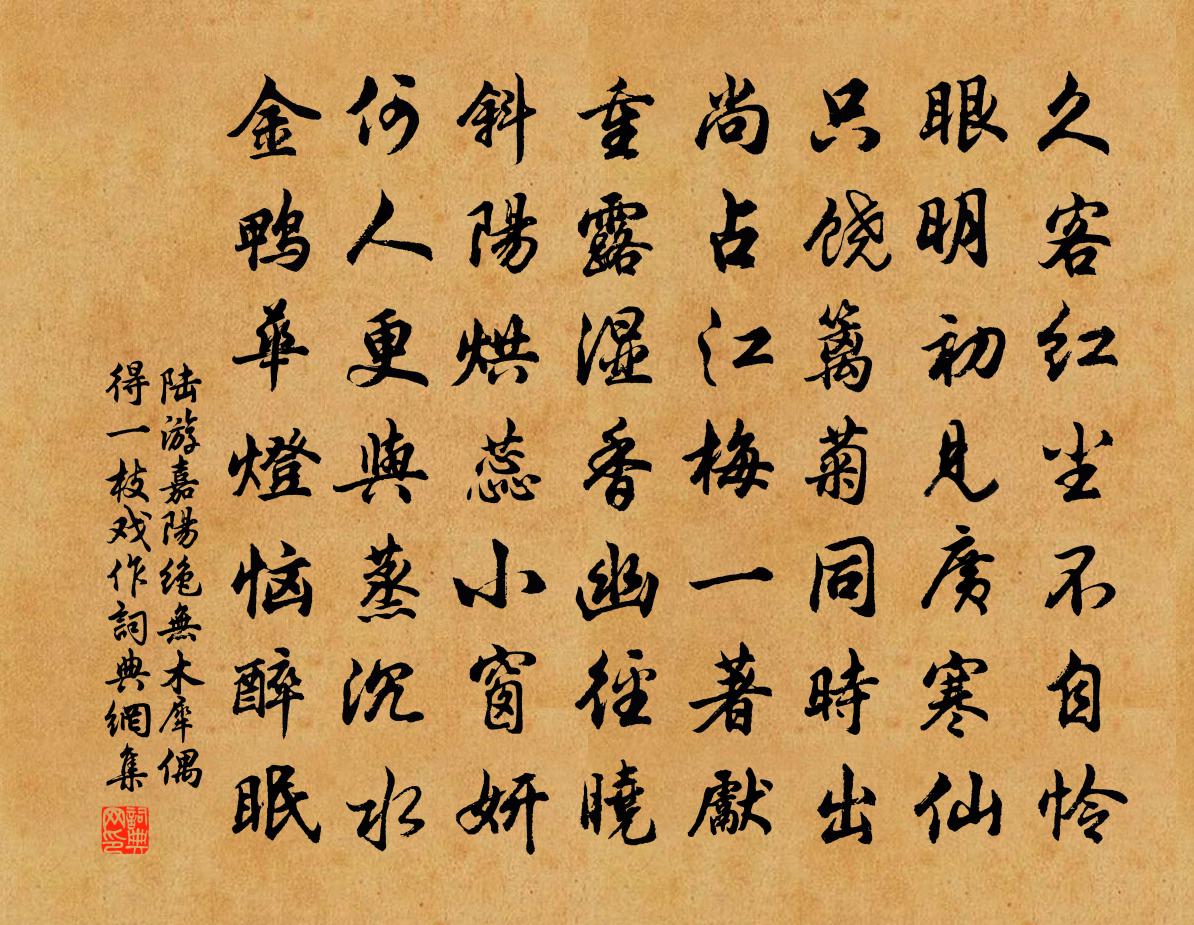 久客红尘不自怜
眼明初见广寒仙
只饶篱菊同時出
尚占江梅一著獻
重露湿香幽径曉
斜陽烘蕊小窗妍
何人更與蒸沉水
金鸭華燈恼醉眠
陆游嘉陽绝無木犀偶
得一枝戏作詞典網集
詞典
网印